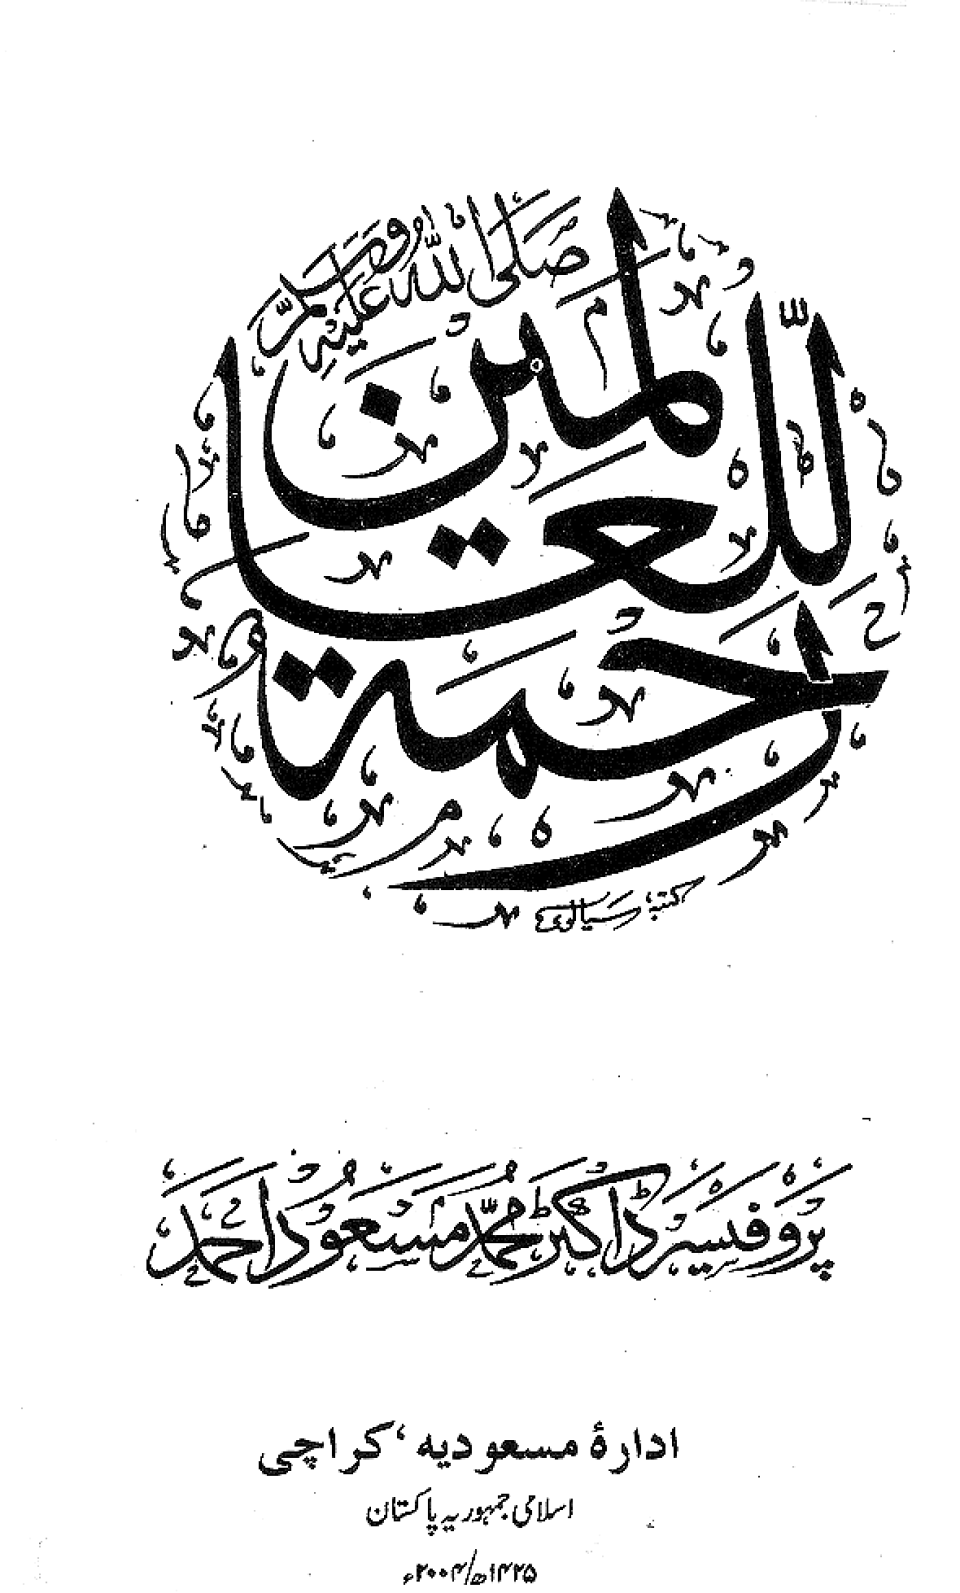 رحمة للعالمين
صلى الله عليه وسلم
پروفیسر ڈاکٹر محمد مسعود احمد
ادارۂ مسعودیہ، کراچی
اسلامی جمہوریہ پاکستان
۱۴۲۵ھ/۲۰۰۴ء